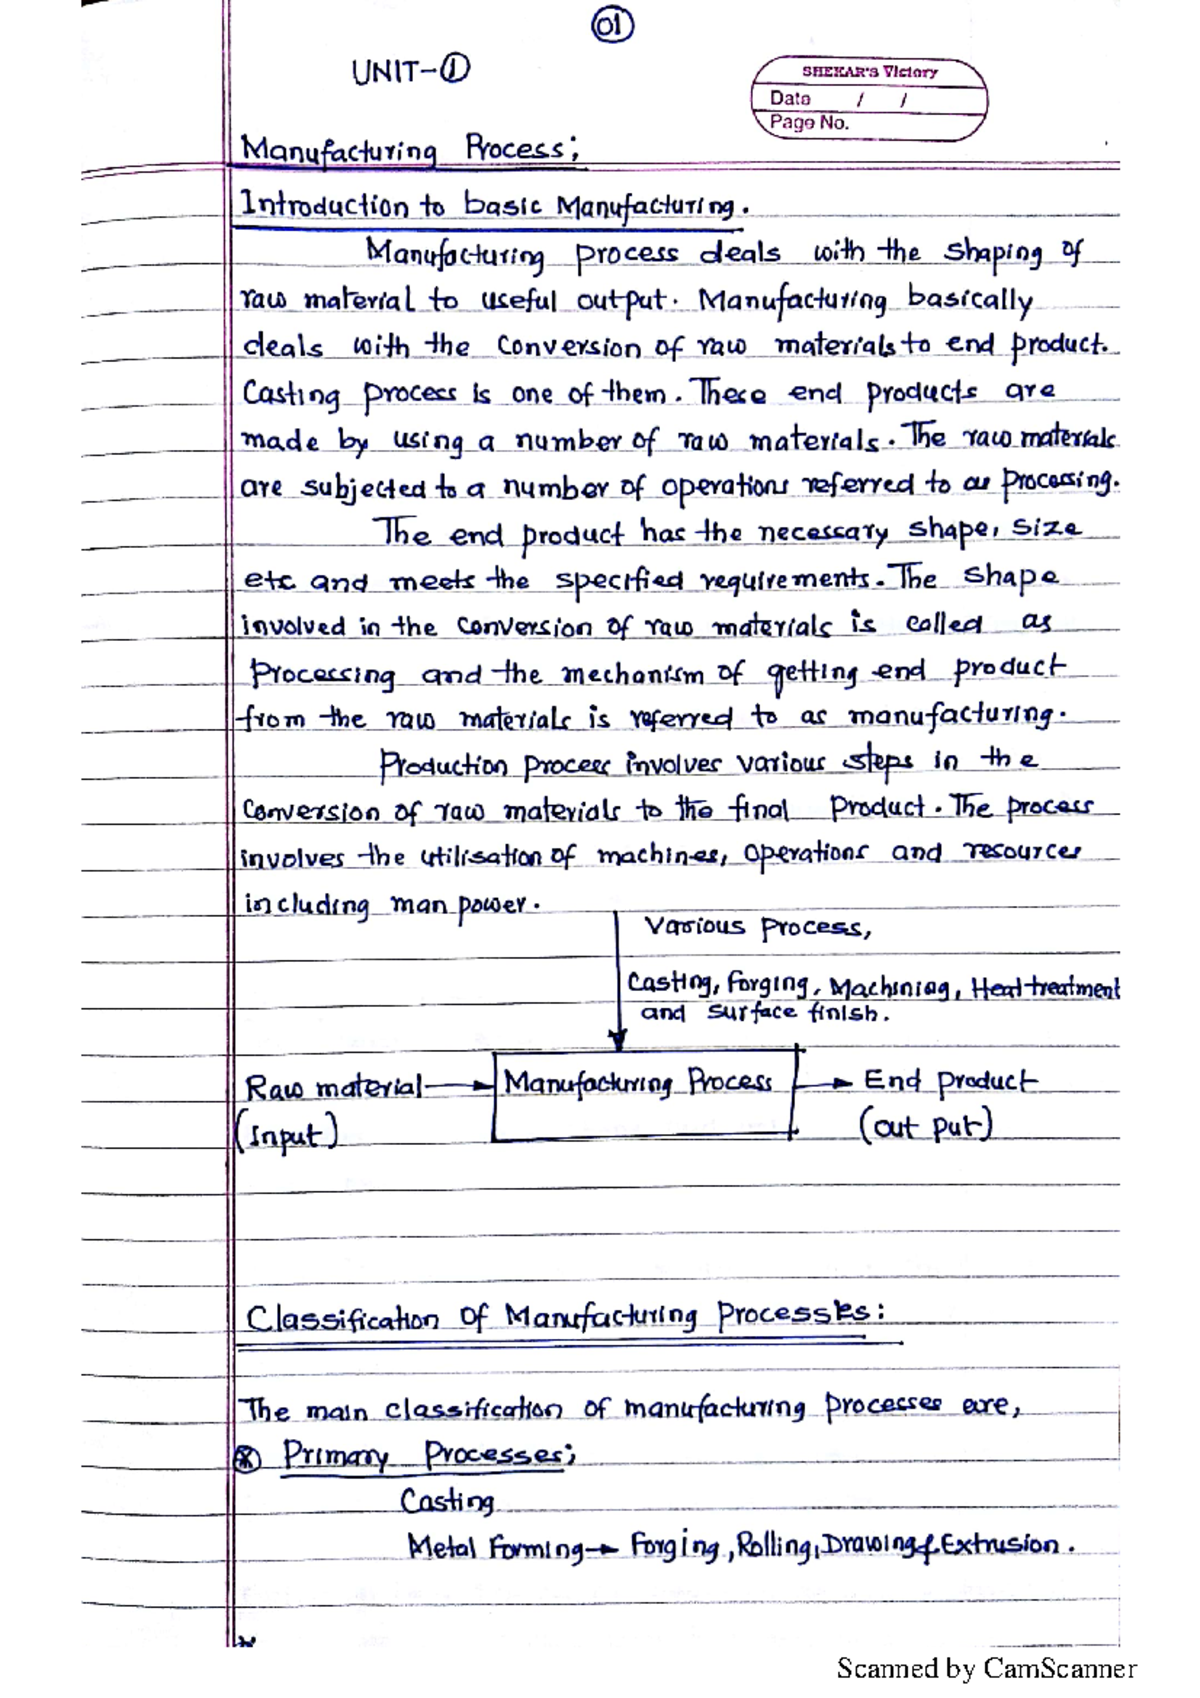 01
UNIT-①
SHEKAR'S Victory
Date / /
Page No.
Manufacturing Process;
Introduction to basic Manufacturing.
Manufacturing process deals with the shaping of
raw material to useful output. Manufacturing basically
deals with the conversion of raw materials to end product.
Casting process is one of them. These end products are
made by using a number of raw materials. The raw materials
are subjected to a number of operations referred to as processing.
The end product has the necessary shape, size
etc and meets the specified requirements. The shape
involved in the conversion of raw materials is called as
processing and the mechanism of getting end product
from the raw materials is referred to as manufacturing.
Production process involves various steps in the
conversion of raw materials to the final product. The process
involves the utilisation of machines, operations and resources
including man power.
Various process,
Casting, Forging, Machining, Heat treatment
and surface finish.
Raw material → Manufacturing Process → End product
(Input) (out put)
Classification of Manufacturing Processes:
The main classification of manufacturing processes are,
Primary Processes;
Casting
Metal Forming → Forging, Rolling, Drawing & Extrusion.
Scanned by CamScanner